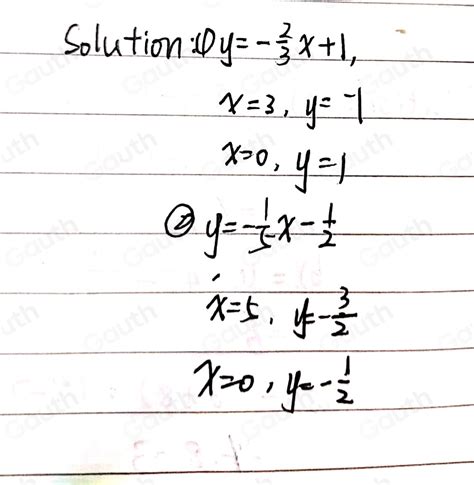 Solution:① y=-2/3x+1,
x=3, y=-1
x=0, y=1
② y=-1/5x-1/2
x=5, y=-3/2
x=0, y=-1/2